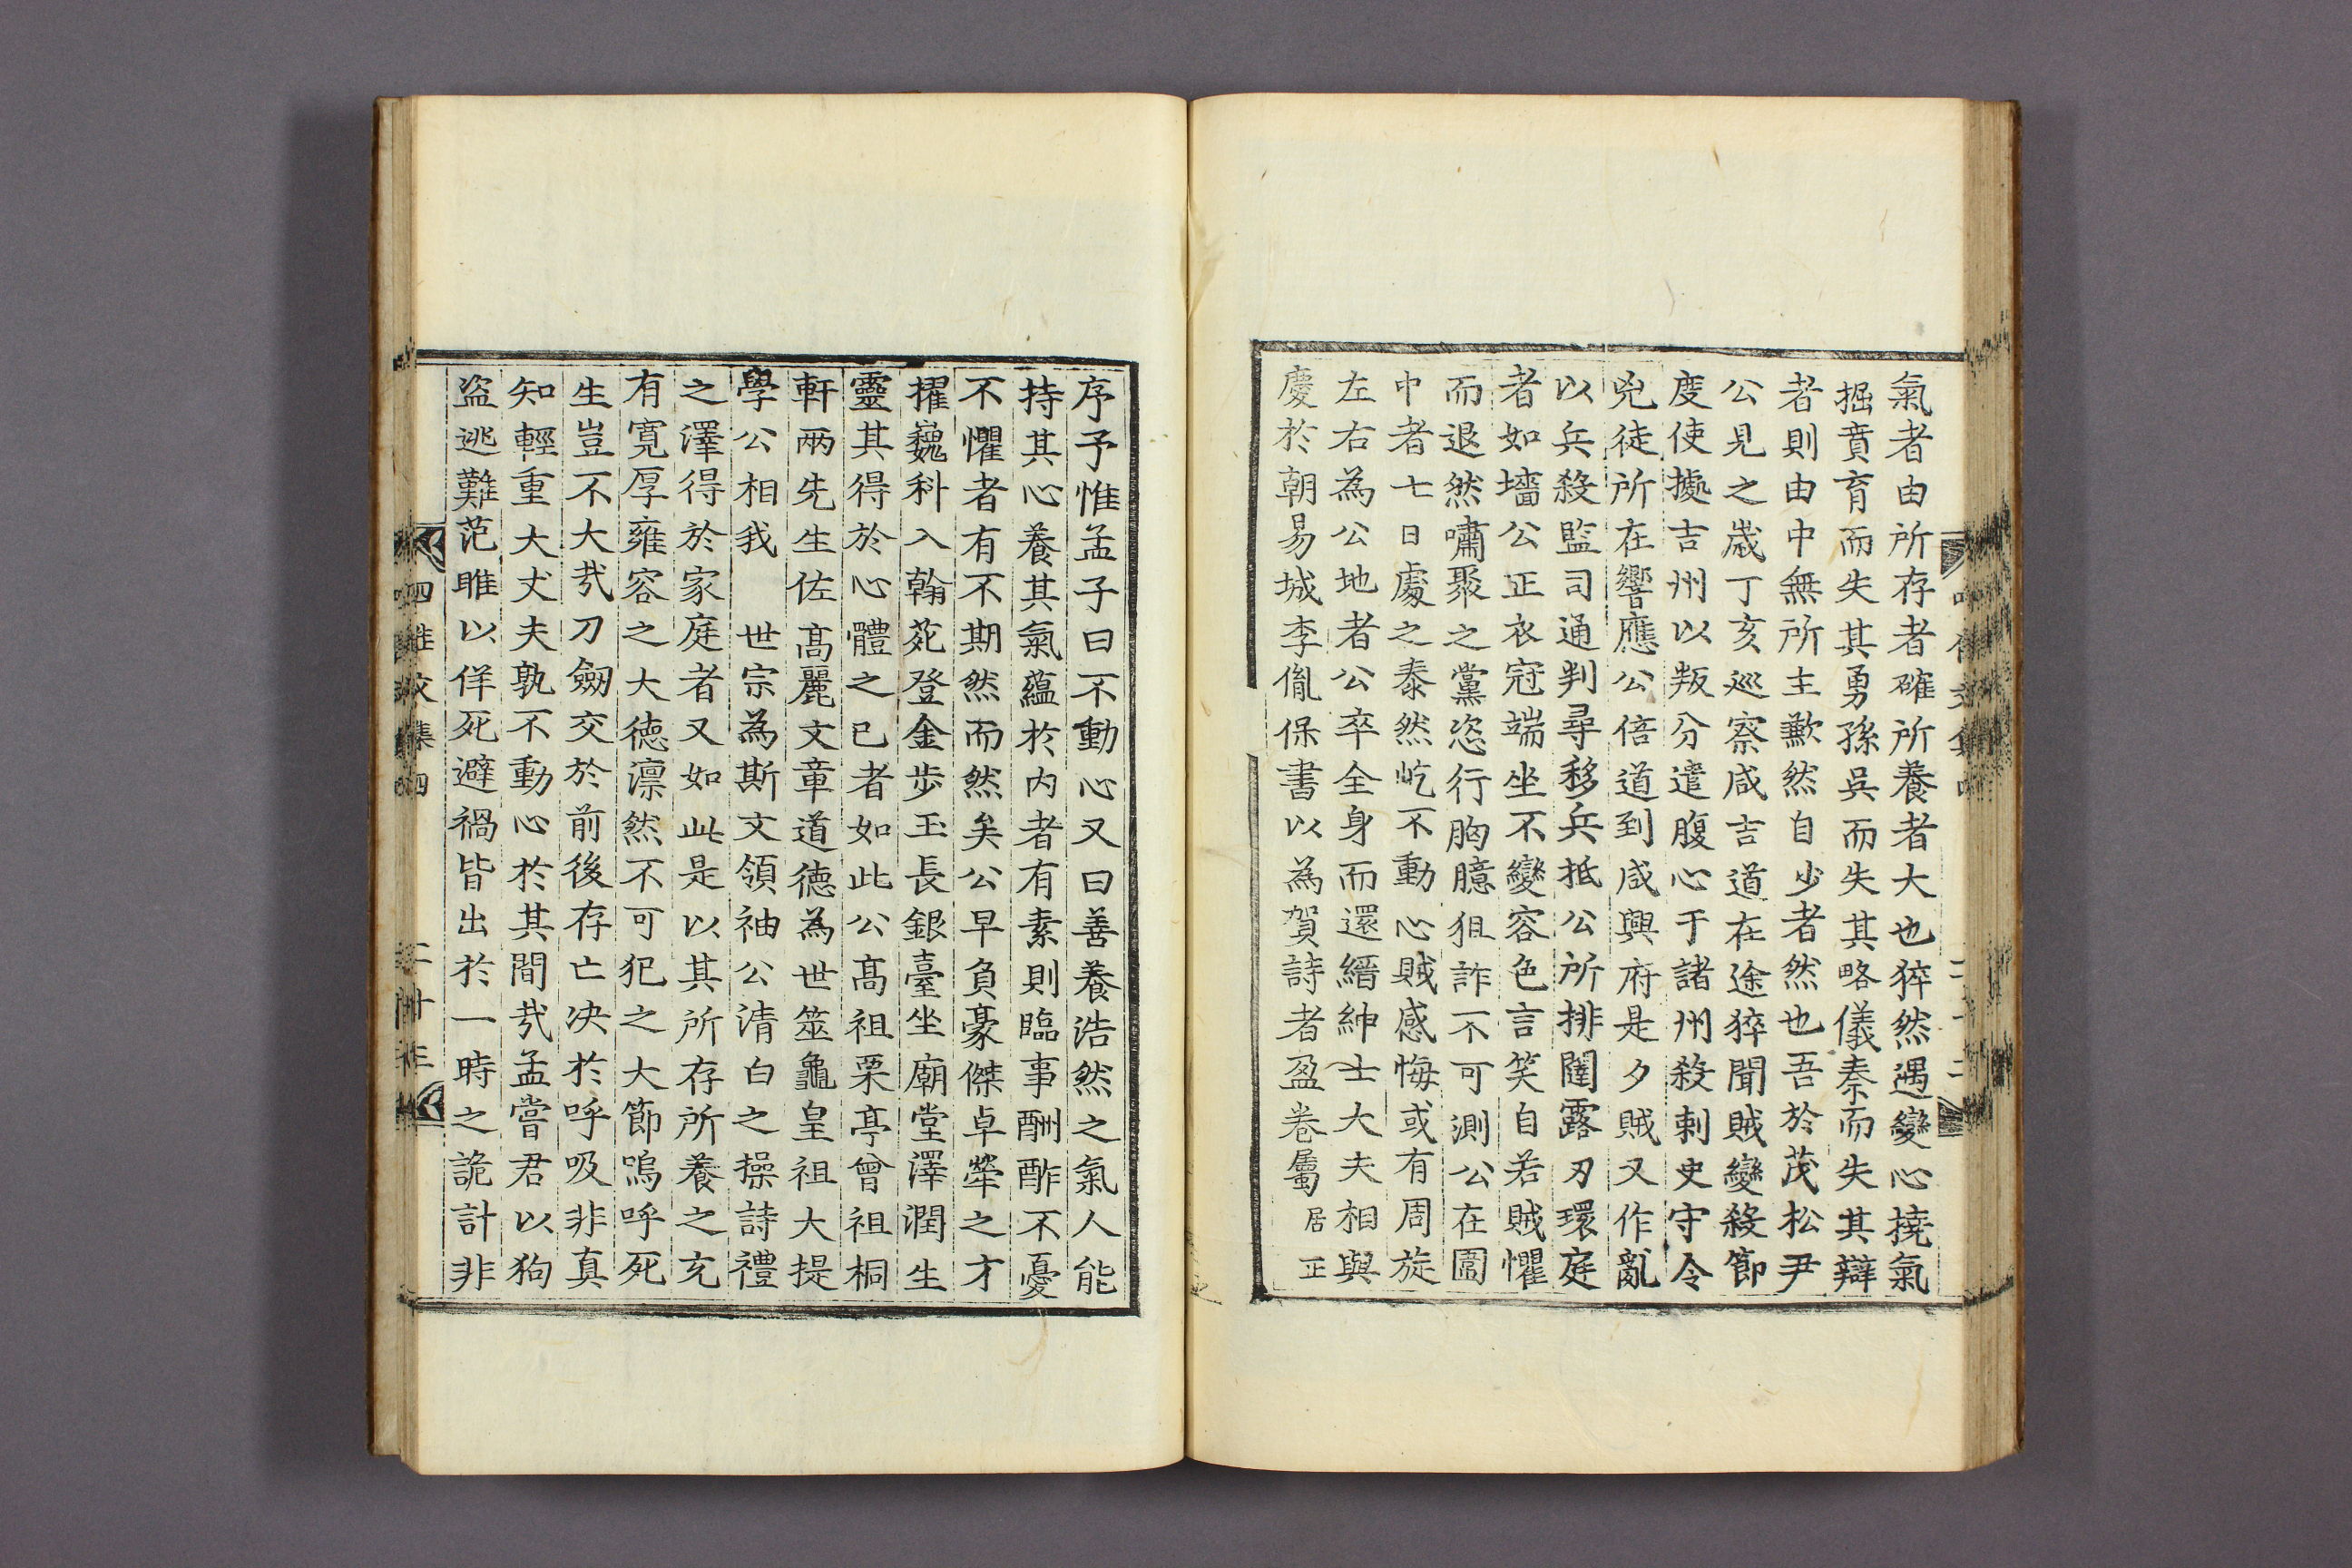 氣者由所存者確所養者大也猝然遇變心撓氣
掘賁育而失其勇孫吳而失其略儀秦而失其辯
者則由中無所主歉然自少者然也吾於茂松尹
公見之歲丁亥巡察咸吉道在途猝聞賊變殺節
度使據吉州以叛分遣腹心于諸州殺刺史守令
兇徒所在響應公倍道到咸興府是夕賊又作亂
以兵殺監司通判尋移兵抵公所排闥露刃環庭
者如墻公正衣冠端坐不變容色言笑自若賊懼
而退然嘯聚之黨恣行胸臆狙詐不可測公在圍
中者七日處之泰然屹不動心賊感悔或有周旋
左右為公地者公卒全身而還縉紳士大夫相與
慶於朝易城李胤保書以為賀詩者盈卷屬居正
序予惟孟子曰不動心又曰善養浩然之氣人能
持其心養其氣蘊於内者有素則臨事酬酢不憂
不懼者有不期然而然矣公早負豪傑卓犖之才
擢巍科入翰苑登金步玉長銀臺坐廟堂澤潤生
靈其得於心體之已者如此公高祖栗亭曾祖桐
軒兩先生佐高麗文章道德為世筮龜皇祖大提
學公相我 世宗為斯文領袖公清白之操詩禮
之澤得於家庭者又如此是以其所存所養之充
有寬厚雍容之大德凛然不可犯之大節嗚呼死
生豈不大哉刀劒交於前後存亡决於呼吸非真
知輕重大丈夫孰不動心於其間哉孟嘗君以狗
盜逃難范雎以佯死避禍皆出於一時之詭計非
四佳文集四